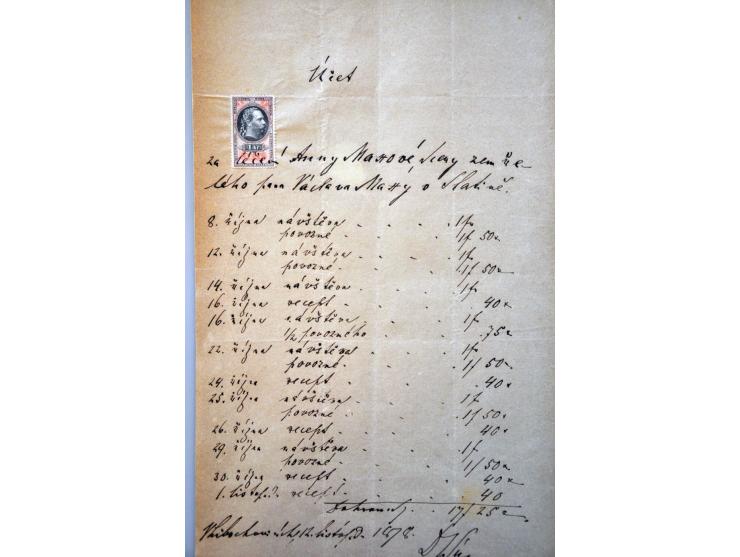 Účet
za léčení Anny Maxové dcery zemře-
lého pana Václava Maxy v Slatině.
8. října návštěva . . . 1f
povozné . . . 1f 50x
12. října návštěva . . . 1f
povozné . . . 1f 50x
14. října návštěva . . . 1f
16. října recept . . . 40x
16. října návštěva . . . 1f
1/2 povozného . . . 75x
22. října návštěva . . . 1f
povozné . . . 1f 50x
24. října recept . . . 40x
25. října návštěva . . . 1f
povozné . . . 1f 50x
26. října recept . . . 40x
29. října návštěva . . . 1f
povozné . . . 1f 50x
30. října recept . . . 40x
1. listop.d. recept . . . 40
17f 25x
12. listop.d.